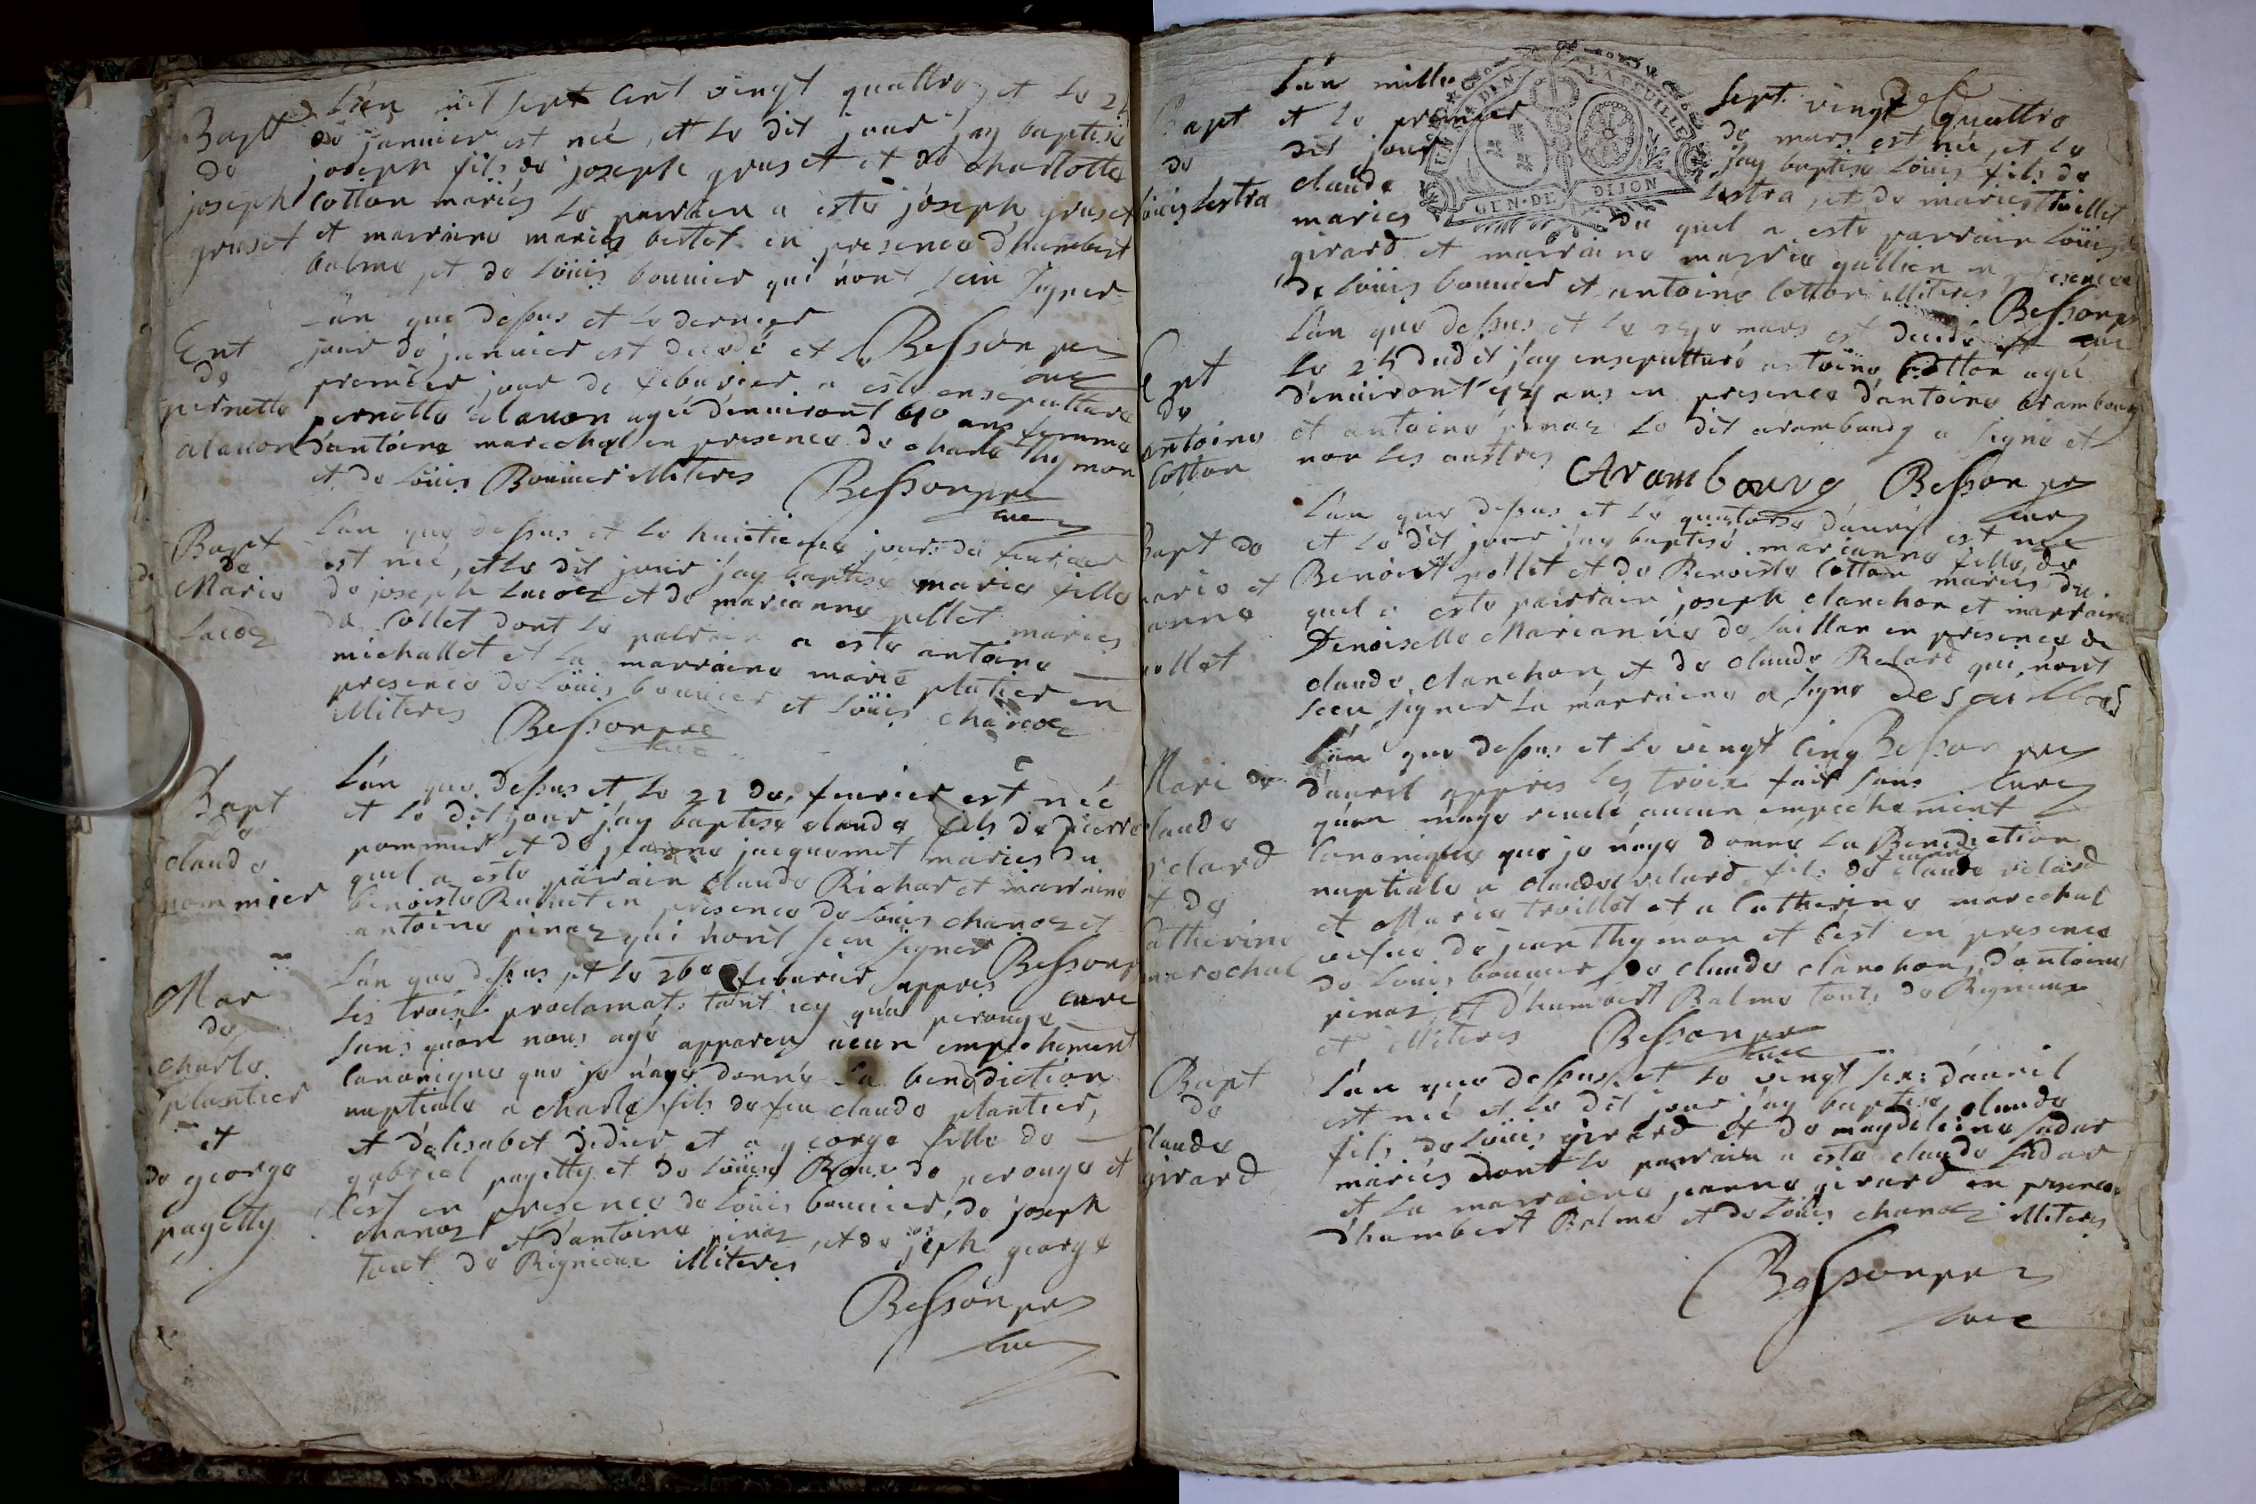 Bapt
de
joseph
gruset
L'an mil sept cent vingt quattre et le 21
de janvier est né, et le dit jour j'ay baptise
joseph fils de joseph gruset et de charlotte
Cotton mariés le parrain a esté joseph gruset
et marraine marie bertet en presence d'humbert
balme et de Loüis bonnier qui n'ont sceu signer
Besson pre
curé
Ent
de
pernette
alavon
L'an que dessus et le dernier
jour de janvier est decedé et le
premier jour de febvrier a esté ensepulturé
pernette alavon agée d'environt 60 ans femme
d'antoine marechal en presence de charle thymon
et de Loüis Bonnier illiteres
Besson pre
curé
Bapt
de
Marie
Lacoz
L'an que dessus et le huictieme jour de fevrier
est né, et le dit jour j'ay baptise marie fille
de joseph Lacoz et de marianne pellet mariés
du Collet dont le parrain a esté antoine
michallet et la marraine marie platier en
presence de Loüis bonnier et Loüis chanoz
illiteres Besson pre
curé
Bapt
de
claude
pommier
L'an que dessus et le 21 de fevrier est né
et le dit jour j'ay baptise claude fils de pierre
pommier et de jeanne jacquemet mariés du
quel a esté parrain claude Richar et marraine
benoiste Runet en presence de Loüis chanoz et
antoine pinaz qui n'ont sceu signer Besson p
curé
Mar
de
charle
plantier
et
de george
pagetty
L'an que dessus et le 26e febvrier appres
les trois proclamat. tant icy qu'a perouge
sans qu'on nous aye apparen aucun empechement
Canonique que je n'aye donné la benediction
nuptiale a charle fils de feu claude plantier,
et d'elisabet didier et a george fille de
gabriel pagetty et de Loüise Roux de perouge et
c'est en presence de Loüis bonnier, de joseph
chanoz et d'antoine pinaz, et de joseph george
tout de Rignieux illiteres
Besson pre
curé
Bapt
de
Loüis Lestra
L'an mille sept vingt quattre
et le premier de mars est né, et le
dit jour j'ay baptise Loüis fils de
claude Lestra, et de marie thoillet
mariés du quel a esté parrain Loüis
girard et marraine marie gallien en presence
de Loüis bonnier et antoine Cotton illiteres
Besson pre
curé
GEN. DE DIJON
LA FEUILLE
Ent
de
antoine
Cotton
L'an que dessus et le mars est decedé et
le 25 dudit j'ay ensepulturé antoine Cotton agé
d'environt ans en presence d'antoine arambourg
et antoine pinaz le dit arambourg a signé et
non les austres
Arambourg Besson pre
curé
Bapt de
marie et
anne
pollet
L'an que dessus et le quatorse d'avril est née
et le dit jour j'ay baptisé marianne fille de
Benoist pollet et de Benoiste Cotton mariés du
quel a esté parrain joseph clanchon et marraine
Demoiselle Marianne de saillan en presence de
claude clanchon et de claude Relard qui n'ont
sceu signer la marraine a signé de saillans
Besson pre
curé
Mari de
claude
relard
et de
Catherine
marechal
L'an que dessus et le vingt cinq
d'avril appres les trois fait sans
qu'on m'aye revelé aucun empechement
Canonique que je n'aye donné la Benediction
nuptiale a claude relard fils de claude relard
et Marie troillet et a Catherine marechal
vefve de jean thymon et c'est en presence
de Louis bonnier, de claude clanchon, d'antoine
pinaz, et d'humbert Balme touts de Rignieux
et illiteres Besson pre
curé
Bapt
de
Claude
girard
L'an que dessus et le vingt six d'avril
est né et le dit jour j'ay baptise claude
fils de Loüis girard et de magdeleine Ladar
mariés dont le parrain a esté claude Ladar
et la marraine jeanne girard en presence
d'humbert Balme et de Loüis chanoz illiteres
Besson pre
curé